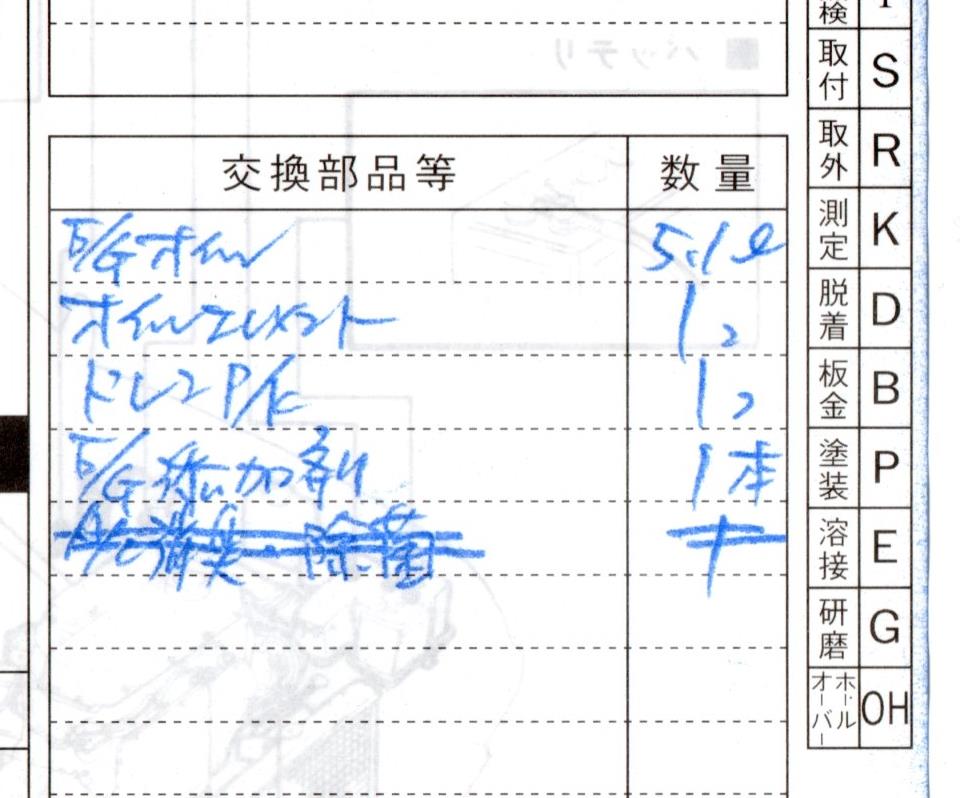 交換部品等 数量
E/Gオイル 5.1ℓ
オイルエレメント 1コ
ドレンP/K 1コ
E/G添加剤 1本
A/C消臭・除菌 1
検
取付 S
取外 R
測定 K
脱着 D
板金 B
塗装 P
溶接 E
研磨 G
オーバーホール OH